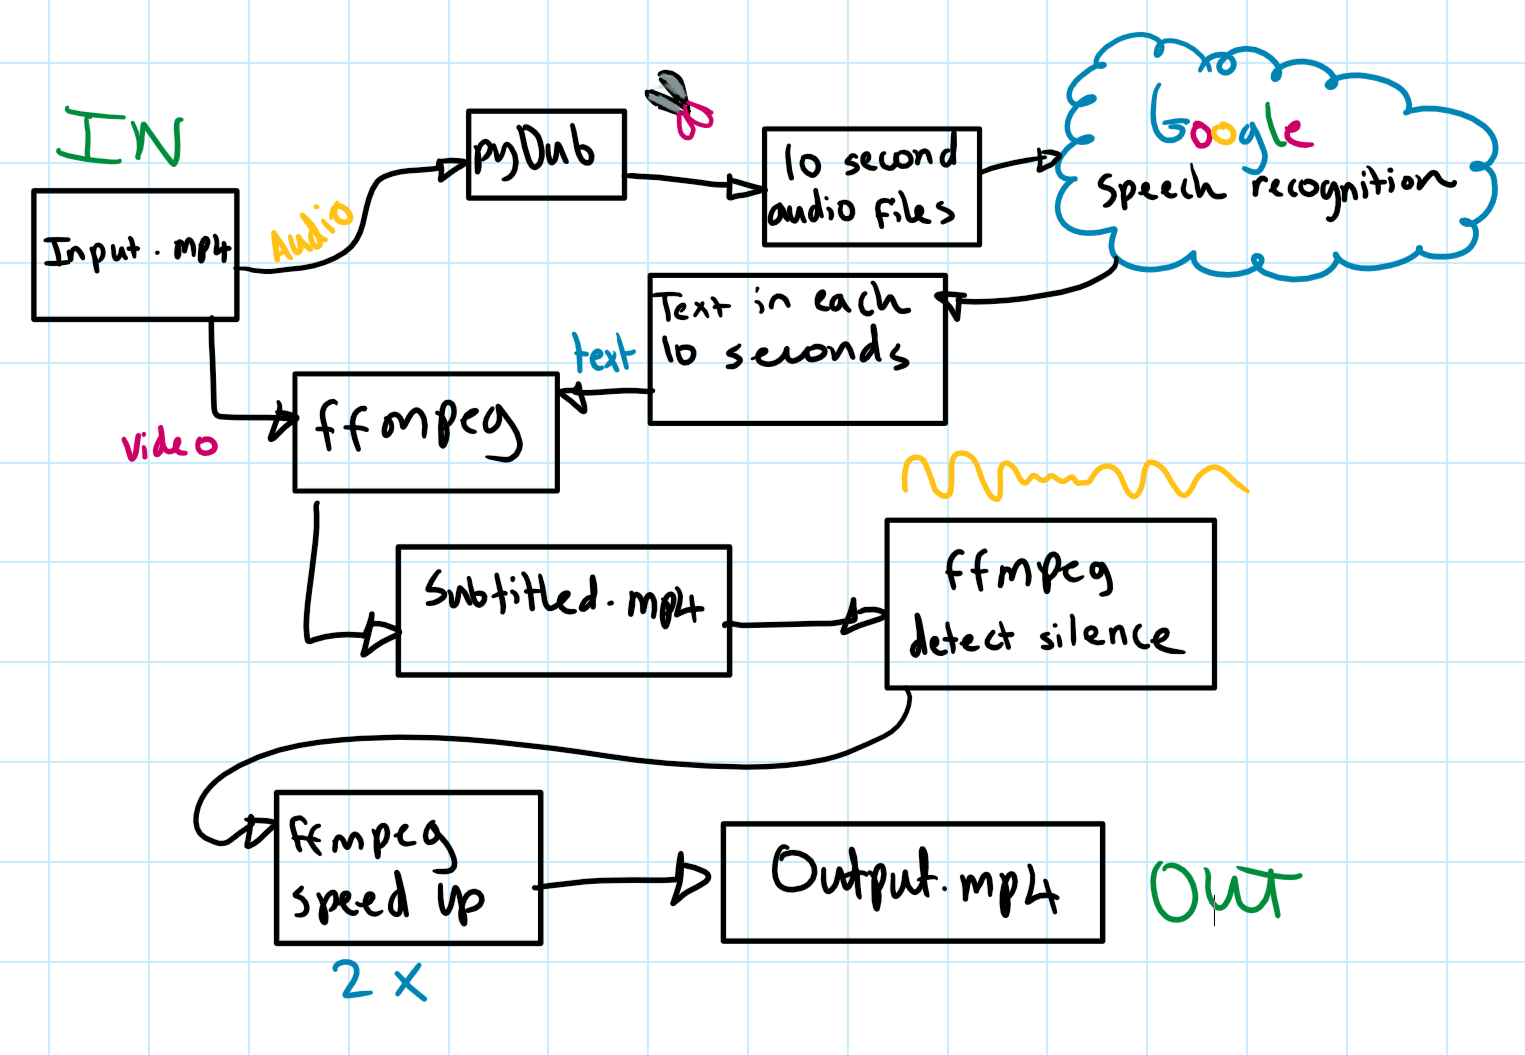 IN
Input.mp4
Audio
pyDub
10 second
audio files
Google
speech recognition
Text in each
10 seconds
text
video
ffmpeg
Subtitled.mp4
ffmpeg
detect silence
ffmpeg
speed up
2x
Output.mp4
OUT